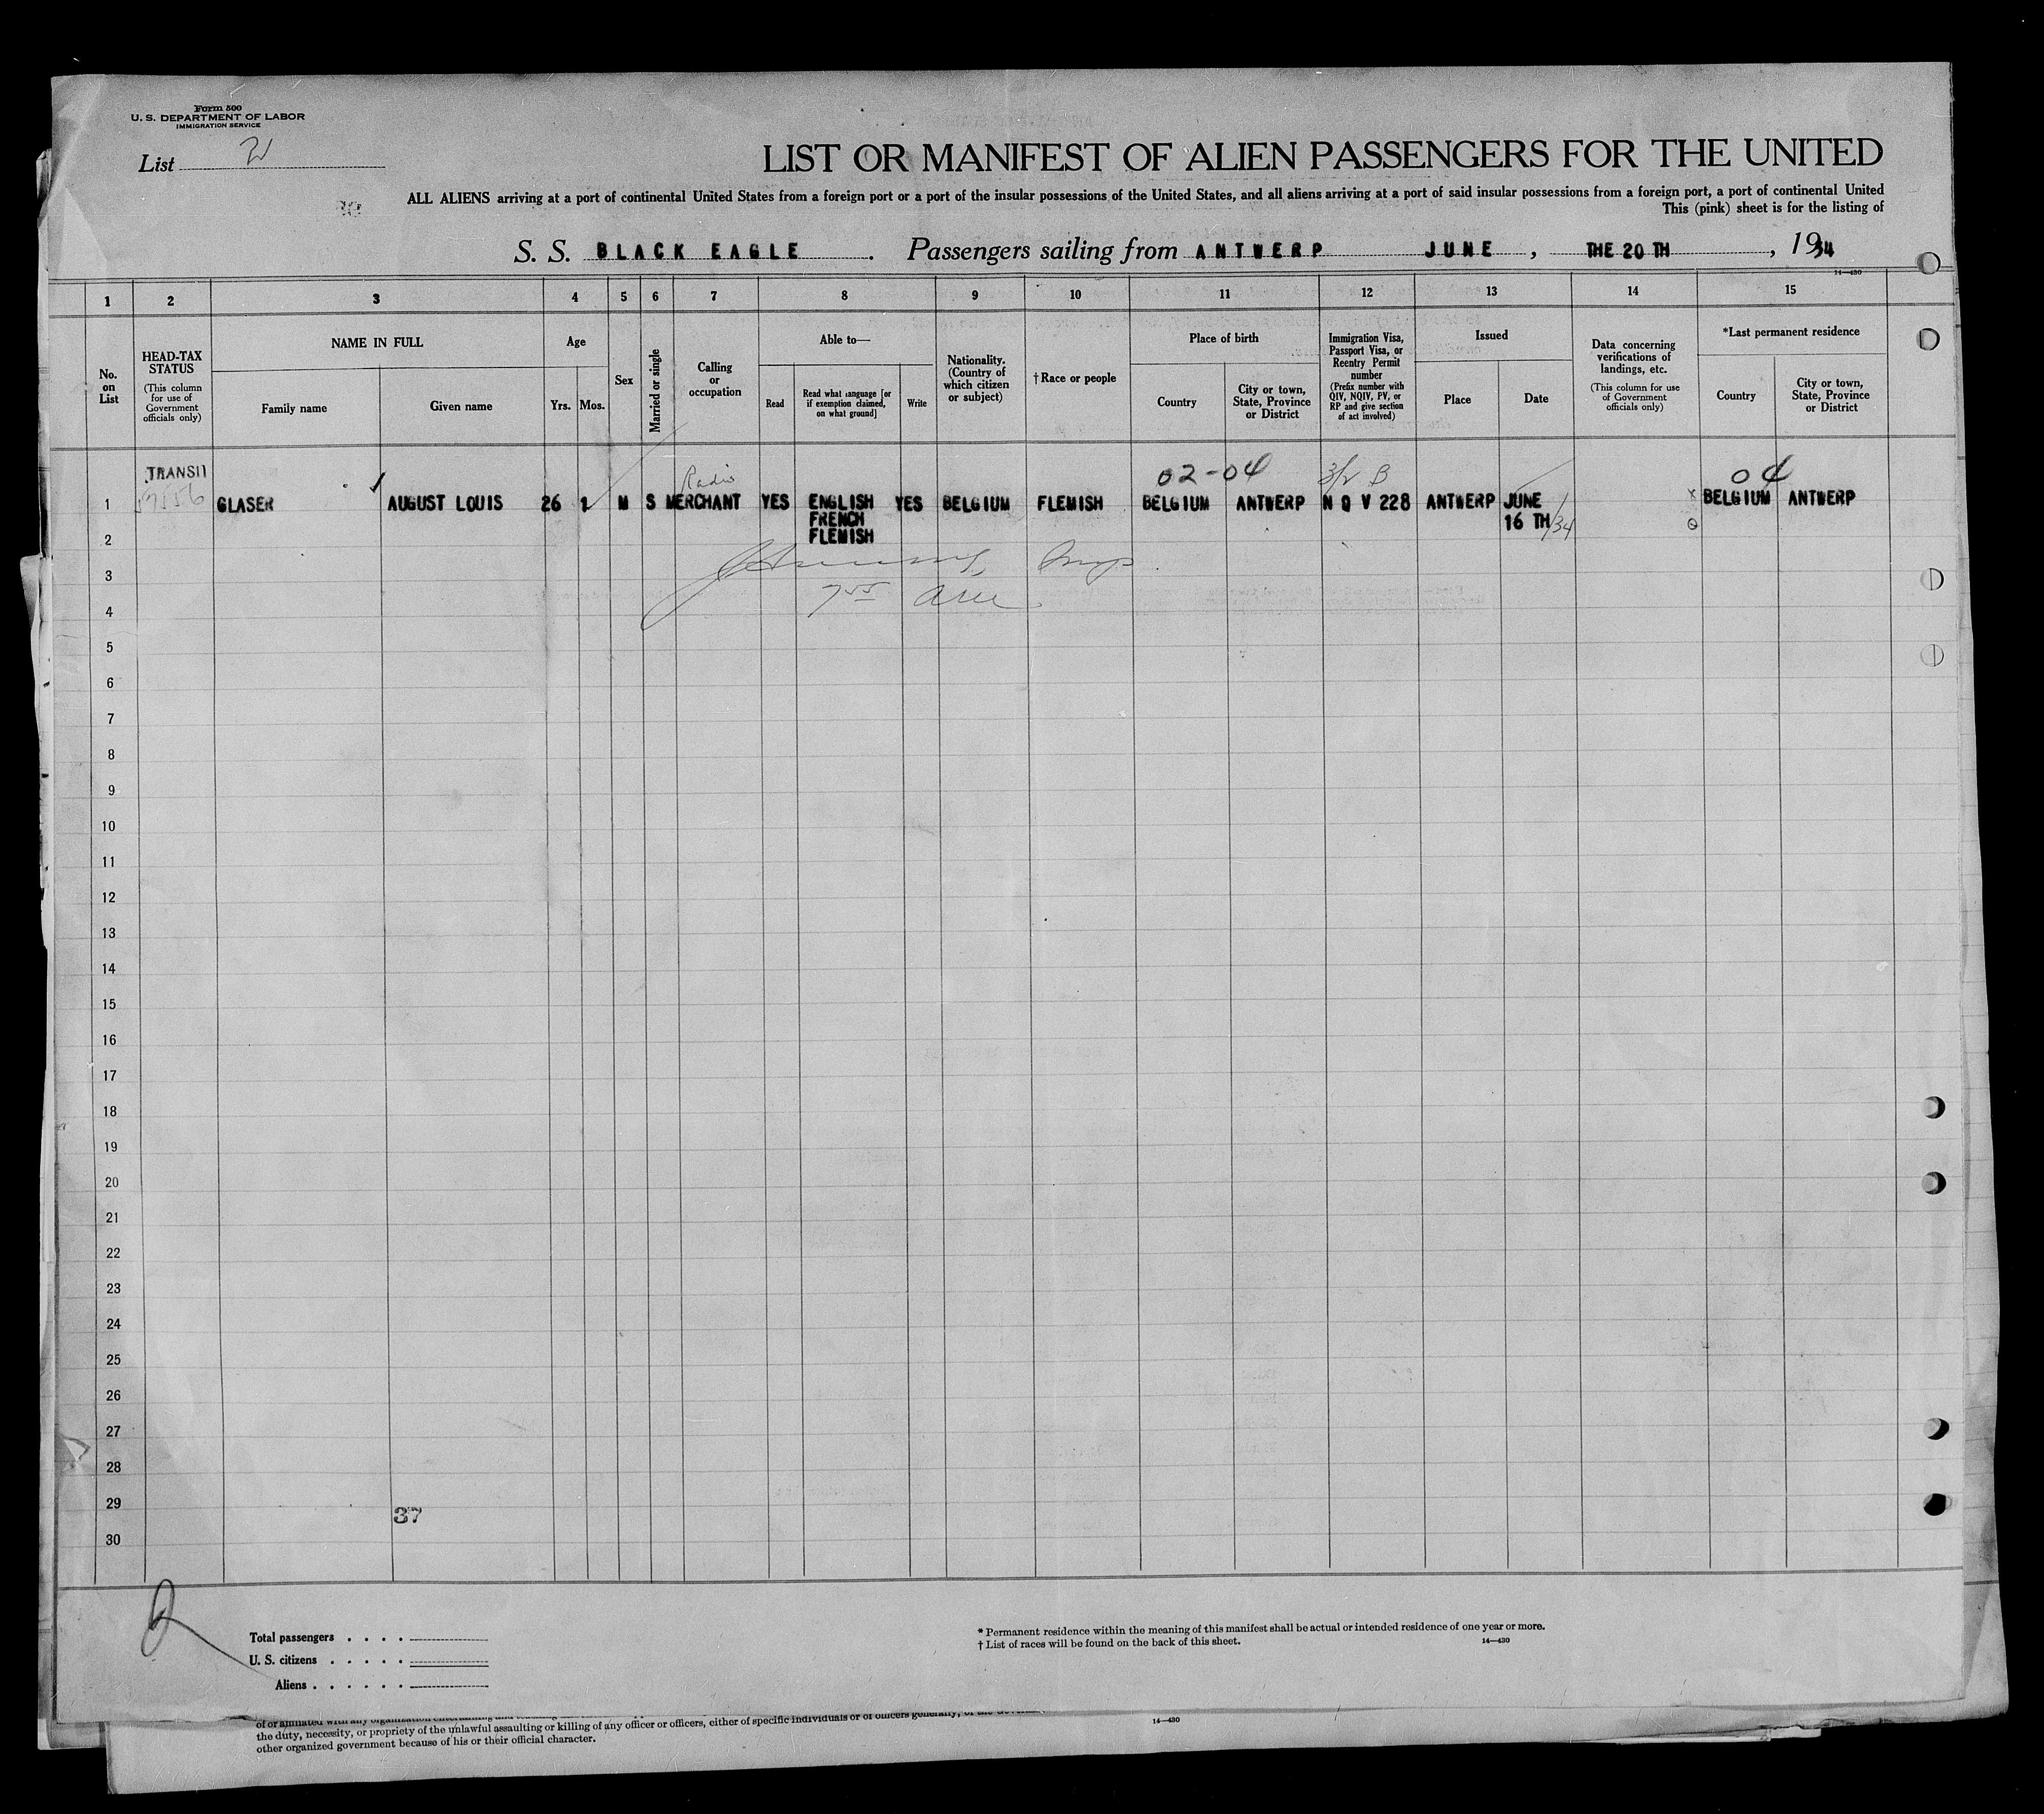 Form 500
U. S. DEPARTMENT OF LABOR
IMMIGRATION SERVICE
List
LIST OR MANIFEST OF ALIEN PASSENGERS FOR THE UNITED
ALL ALIENS arriving at a port of continental United States from a foreign port or a port of the insular possessions of the United States, and all aliens arriving at a port of said insular possessions from a foreign port, a port of continental United
This (pink) sheet is for the listing of
S. S. BLACK EAGLE . Passengers sailing from ANTWERP JUNE , THE 20 TH , 1934
14—430
1 2 3 4 5 6 7 8 9 10 11 12 13 14 15
No. on List
HEAD-TAX STATUS
(This column for use of Government officials only)
NAME IN FULL
Family name
Given name
Age
Yrs. Mos.
Sex
Married or single
Calling or occupation
Able to—
Read
Read what language [or if exemption claimed, on what ground]
Write
Nationality. (Country of which citizen or subject)
†Race or people
Place of birth
Country
City or town, State, Province or District
Immigration Visa, Passport Visa, or Reentry Permit number
(Prefix number with QIV, NQIV, PV, or RP and give section of act involved)
Issued
Place
Date
Data concerning verifications of landings, etc.
(This column for use of Government officials only)
*Last permanent residence
Country
City or town, State, Province or District
TRANSIT Radio 02-04 3/2 B 04
1 GLASER AUGUST LOUIS 26 1 M S MERCHANT YES ENGLISH YES BELGIUM FLEMISH BELGIUM ANTWERP N Q V 228 ANTWERP JUNE X BELGIUM ANTWERP
FRENCH 16 TH/34
2 FLEMISH
3
4
5
6
7
8
9
10
11
12
13
14
15
16
17
18
19
20
21
22
23
24
25
26
27
28
29
37
30
Total passengers . . . .
U. S. citizens . . . . .
Aliens . . . . . .
* Permanent residence within the meaning of this manifest shall be actual or intended residence of one year or more.
† List of races will be found on the back of this sheet. 14—430
the duty, necessity, or propriety of the unlawful assaulting or killing of any officer or officers, either of specific individuals or of officers generally, of the
other organized government because of his or their official character.
14—430